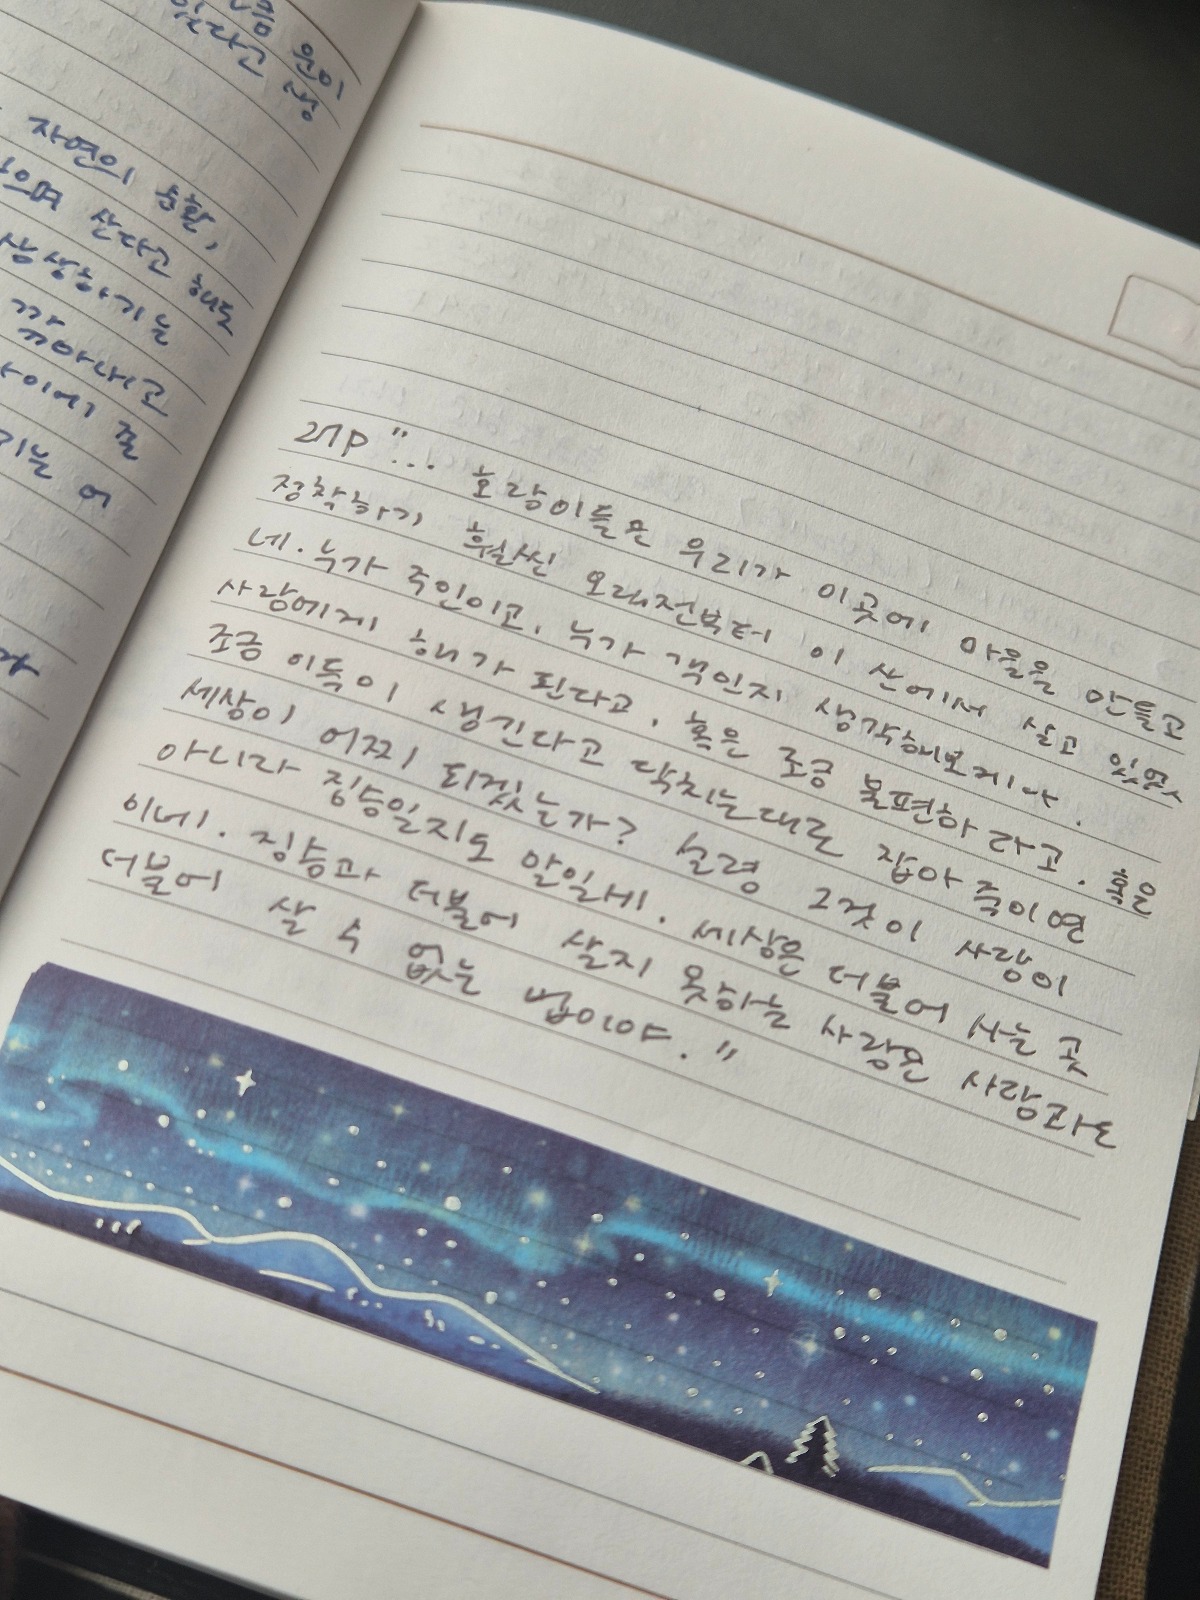 음 운이
있다고 생
자연의 순환,
으며 산다고 해도
상생하기는
이에 꽃
기는 어
27p "... 호랑이들은 우리가 이곳에 마을을 만들고
정착하기 훨씬 오래전부터 이 산에서 살고 있었
네. 누가 주인이고, 누가 객인지 생각해보게나.
사람에게 해가 된다고, 혹은 조금 불편하라고. 혹은
조금 이득이 생긴다고 닥치는대로 잡아 죽이면
세상이 어찌 되겠는가? 설령 그것이 사람이
아니라 짐승일지도 말일세. 세상은 더불어 사는 곳
이네. 짐승과 더불어 살지 못하는 사람은 사람과도
더불어 살 수 없는 법이야."